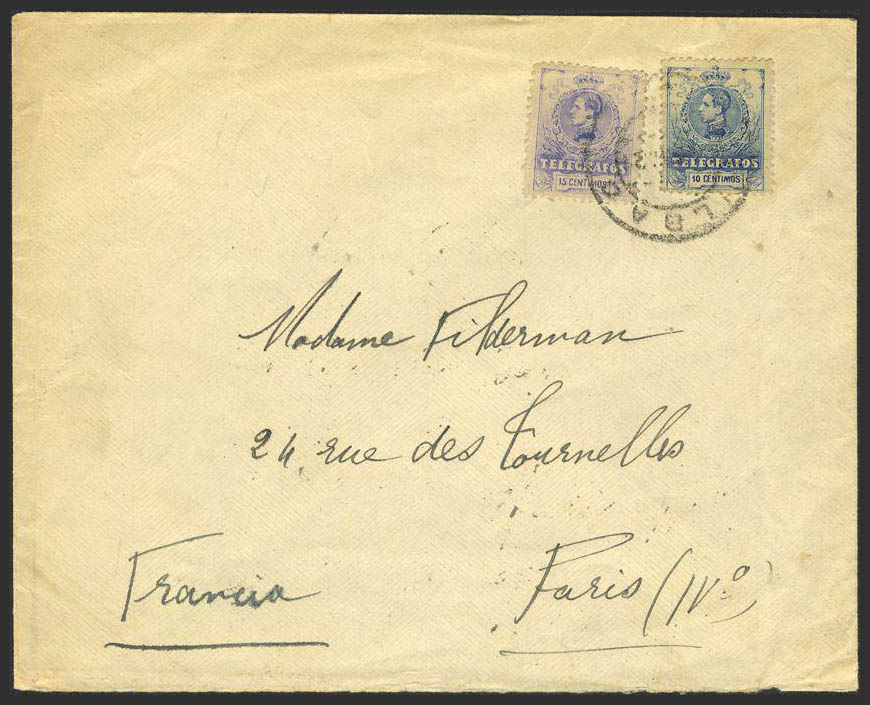 TELEGRAFOS TELEGRAFOS
15 CENTIMOS 10 CENTIMOS
BILBAO
Madame Filderman
24 rue des Tournelles
Francia Paris (IVº)